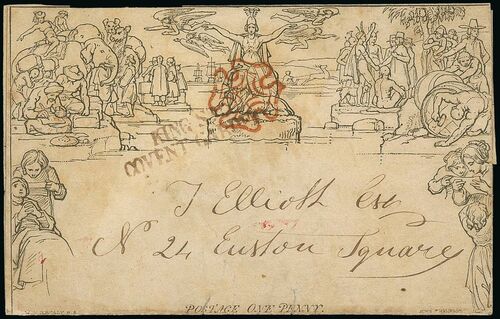 KING S
COVENT G
J Elliott Esq
N 24 Euston Square
POSTAGE ONE PENNY.